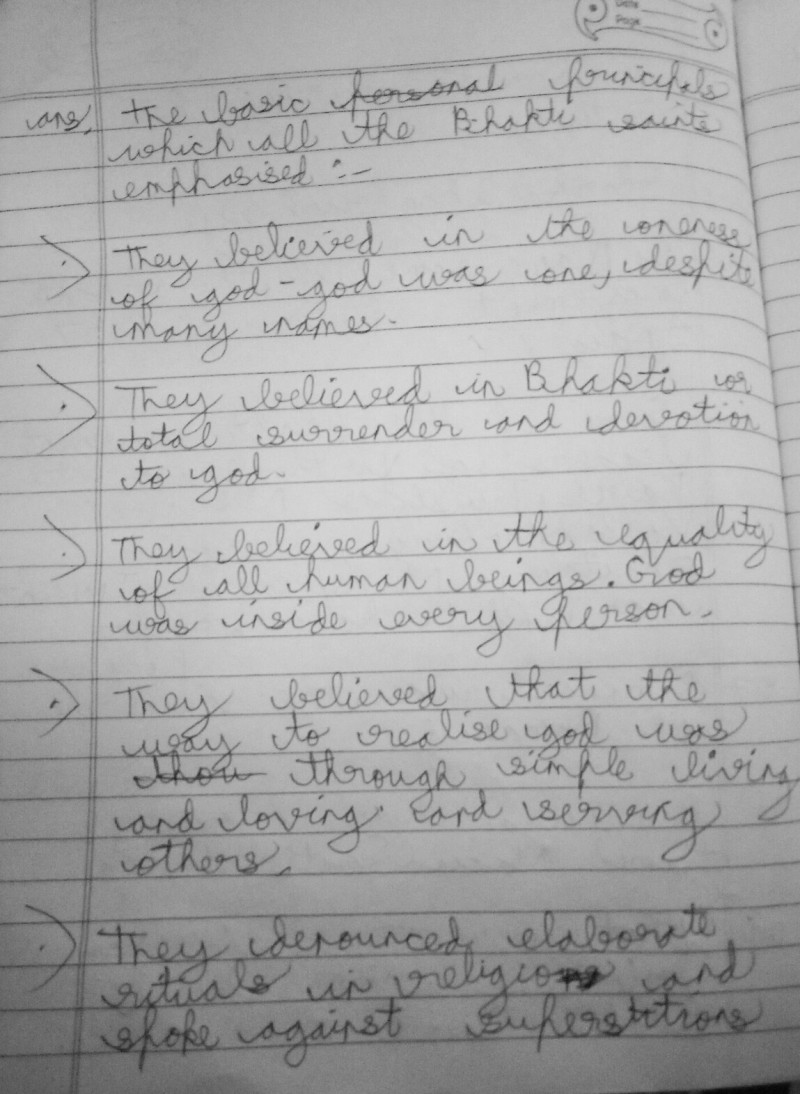 Date
Page
ans. The basic personal principals
which all the Bhakti saints
emphasised :-
They believed in the oneness
of god - god was one, despite
many names.
They believed in Bhakti or
total surrender and devotion
to god.
They believed in the equality
of all human beings. God
was inside every person.
They believed that the
way to realise god was
thou through simple living
and loving and serving
others.
They denounced elaborate
rituals in religion and
spoke against superstitions